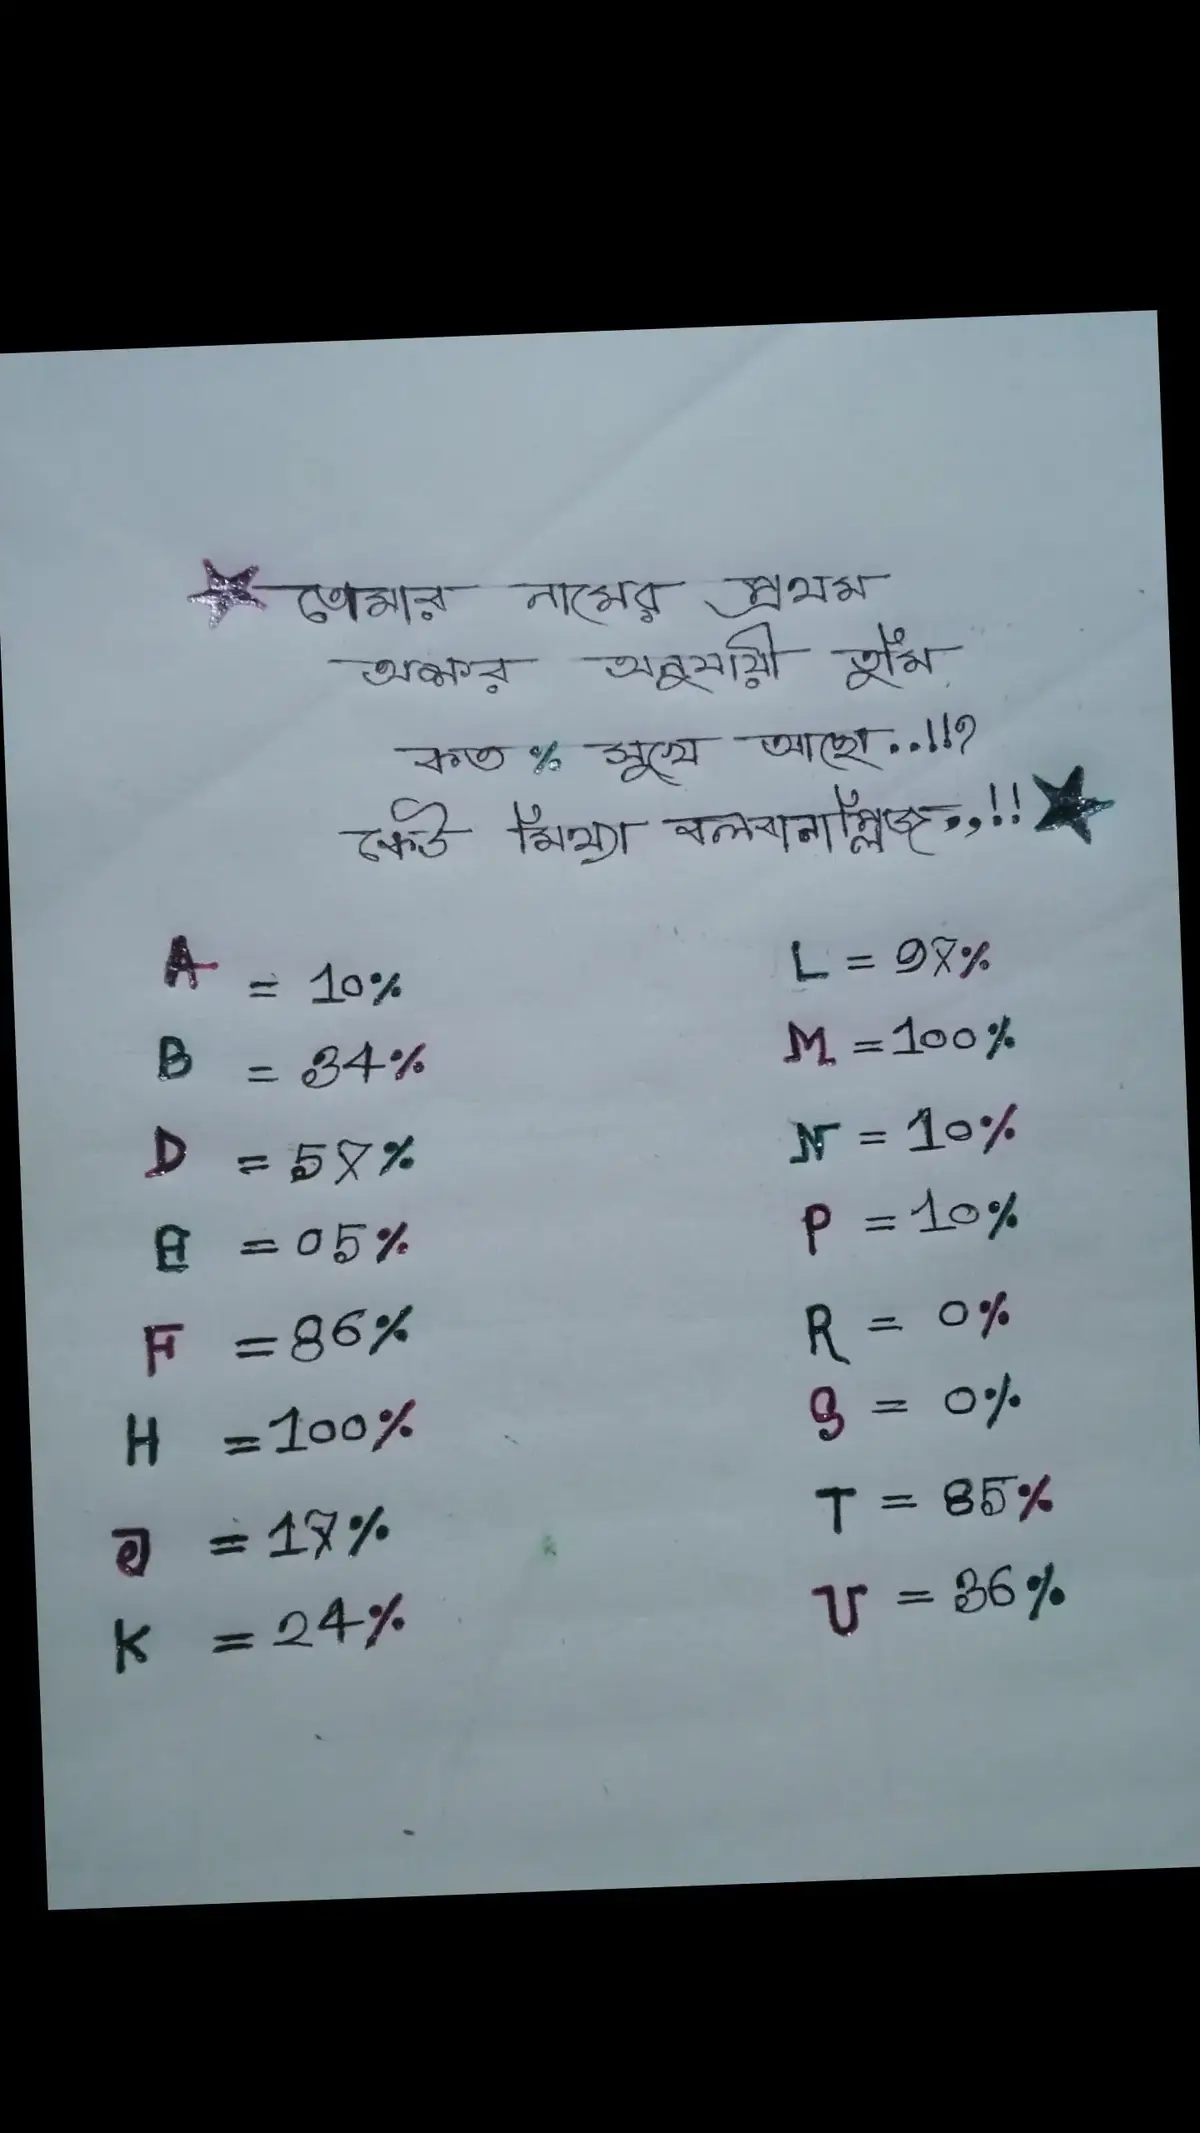 তোমার নামের প্রথম
অক্ষর অনুযায়ী তুমি
কত % সুখে আছো..!!?
কেউ মিথ্যা বলবানা প্লিজ,,!!
A = 10%
B = 34%
D = 57%
E = 05%
F = 86%
H = 100%
J = 17%
K = 24%
L = 97%
M = 100%
N = 10%
P = 10%
R = 0%
S = 0%
T = 85%
U = 36%